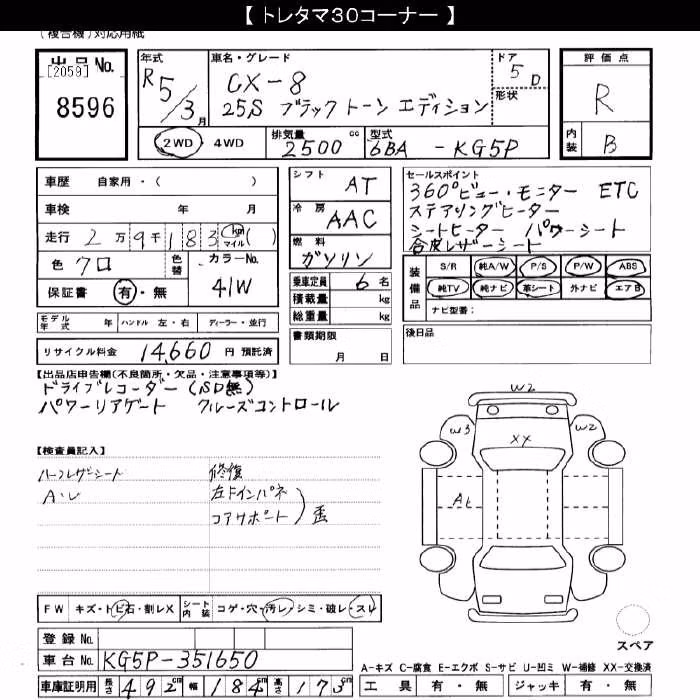 【 トレタマ30コーナー 】
(複合機)対応用紙
出品 No. [2059] 8596
年式 R5/3月
車名・グレード CX-8
25S ブラック トーン エディション
ドア 5D
形状
評価点 R
内装 B
2WD ・ 4WD
排気量 2500 cc
型式 6BA - KG5P
車歴 自家用・( )
車検 年 月
走行 2万9千183 km マイル( )
色 クロ 色替 カラーNo. 41W
保証書 有・無
シフト AT
冷房 AAC
燃料 ガソリン
乗車定員 6名
積載量 kg
総重量 kg
セールスポイント
360°ビュー・モニター ETC
ステアリングヒーター
シートヒーター パワーシート
合皮レザーシート
装備品
S/R 純A/W P/S P/W ABS
純TV 純ナビ 革シート 外ナビ エアB
ナビ型番:
モデル年式 年 ハンドル 左・右 ディーラー・並行
書類期限 月 日
後日品
リサイクル料金 14,660 円 預託済
【出品店申告欄(不良箇所・欠品・注意事項等)】
ドライブレコーダー(SD無)
パワーリアゲート クルーズコントロール
【検査員記入】
ハーフレザーシート 修復
A・U 左Fインパネ
コアサポート 歪
W2
W3 W2
XX
A1
FW キズ・トビ石・割レX シート内装 コゲ・穴・汚レ・シミ・破レ・スレ
スペア
登録 No.
車台 No. KG5P-351650
A-キズ C-腐食 E-エクボ S-サビ U-凹ミ W-補修 XX-交換済
車庫証明用 長さ 492cm 幅 184cm 高さ 173cm
工具 有・無 ジャッキ 有・無